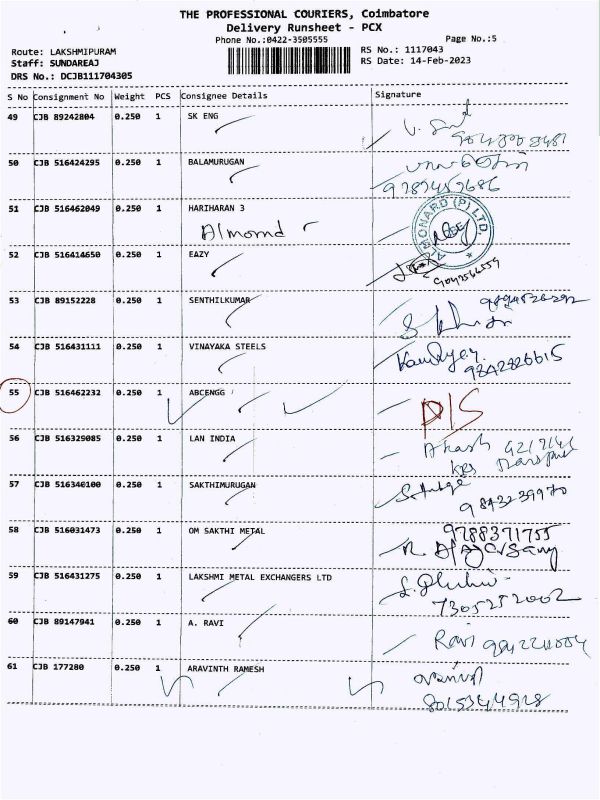 THE PROFESSIONAL COURIERS, Coimbatore
Delivery Runsheet - PCX
Phone No.:0422-3505555
Page No.:5
Route: LAKSHMIPURAM
RS No.: 1117043
Staff: SUNDAREAJ
RS Date: 14-Feb-2023
DRS No.: DCJB111704305
S No Consignment No Weight PCS Consignee Details Signature
49 CJB 89242804 0.250 1 SK ENG
50 CJB 516424295 0.250 1 BALAMURUGAN
9789457686
51 CJB 516462049 0.250 1 HARIHARAN 3
Almomd
ALMONARD (P) LTD.
52 CJB 516414650 0.250 1 EAZY
53 CJB 89152228 0.250 1 SENTHILKUMAR
54 CJB 516431111 0.250 1 VINAYAKA STEELS
9842826615
55 CJB 516462232 0.250 1 ABCENGG
D/S
56 CJB 516329085 0.250 1 LAN INDIA
Akash
57 CJB 516340100 0.250 1 SAKTHIMURUGAN
9843239970
58 CJB 516031473 0.250 1 OM SAKTHI METAL
9788371755
59 CJB 516431275 0.250 1 LAKSHMI METAL EXCHANGERS LTD
7305252002
60 CJB 89147941 0.250 1 A. RAVI
Ravi
61 CJB 177280 0.250 1 ARAVINTH RAMESH
8015344928